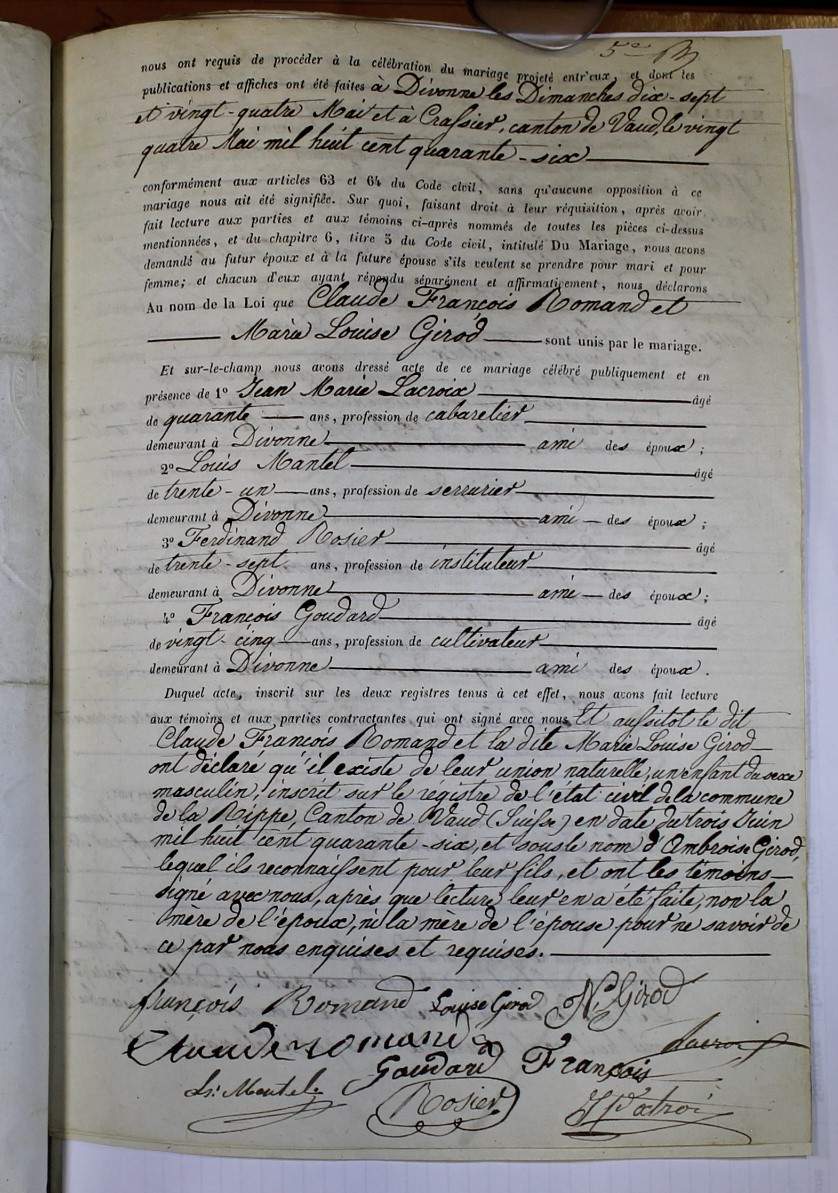 5e
nous ont requis de procéder à la célébration du mariage projeté entr'eux, et dont les
publications et affiches ont été faites à Divonne les Dimanches dix-sept
et vingt-quatre Mai et à Crassier, canton de Vaud, le vingt
quatre Mai mil huit cent quarante-six
conformément aux articles 63 et 64 du Code civil, sans qu'aucune opposition à ce
mariage nous ait été signifiée. Sur quoi, faisant droit à leur réquisition, après avoir
fait lecture aux parties et aux témoins ci-après nommés de toutes les pièces ci-dessus
mentionnées, et du chapitre 6, titre 5 du Code civil, intitulé Du Mariage, nous avons
demandé au futur époux et à la future épouse s'ils veulent se prendre pour mari et pour
femme; et chacun d'eux ayant répondu séparément et affirmativement, nous déclarons
Au nom de la Loi que Claude François Romand et
Marie Louise Girod sont unis par le mariage.
Et sur-le-champ nous avons dressé acte de ce mariage célébré publiquement et en
présence de 1º Jean Marie Lacroix âgé
de quarante ans, profession de cabaretier
demeurant à Divonne ami des époux;
2º Louis Mantel âgé
de trente-un ans, profession de serrurier
demeurant à Divonne ami des époux;
3º Ferdinand Rosier âgé
de trente-sept ans, profession de instituteur
demeurant à Divonne ami des époux;
4º François Goudard âgé
de vingt-cinq ans, profession de cultivateur
demeurant à Divonne ami des époux.
Duquel acte, inscrit sur les deux registres tenus à cet effet, nous avons fait lecture
aux témoins et aux parties contractantes qui ont signé avec nous. Et aussitot le dit
Claude François Romand et la dite Marie Louise Girod
ont déclare qu'il existe de leur union naturelle, un enfant du sexe
masculin, inscrit sur le registre de l'état civil de la commune
de la Rippe, Canton de Vaud (Suisse) en date du trois Juin
mil huit cent quarante-six, et sous le nom d'Ambroise Girod,
lequel ils reconnaissent pour leur fils, et ont les témoins
signé avec nous, après que lecture leur en a été faite, non la
mère de l'époux, ni la mère de l'épouse pour ne savoir de
ce par nous enquises et requises.
françois Romand Louise Girod N. Girod
Claude romand Lacroix
Goudard François
Ls. Mantel Rosier